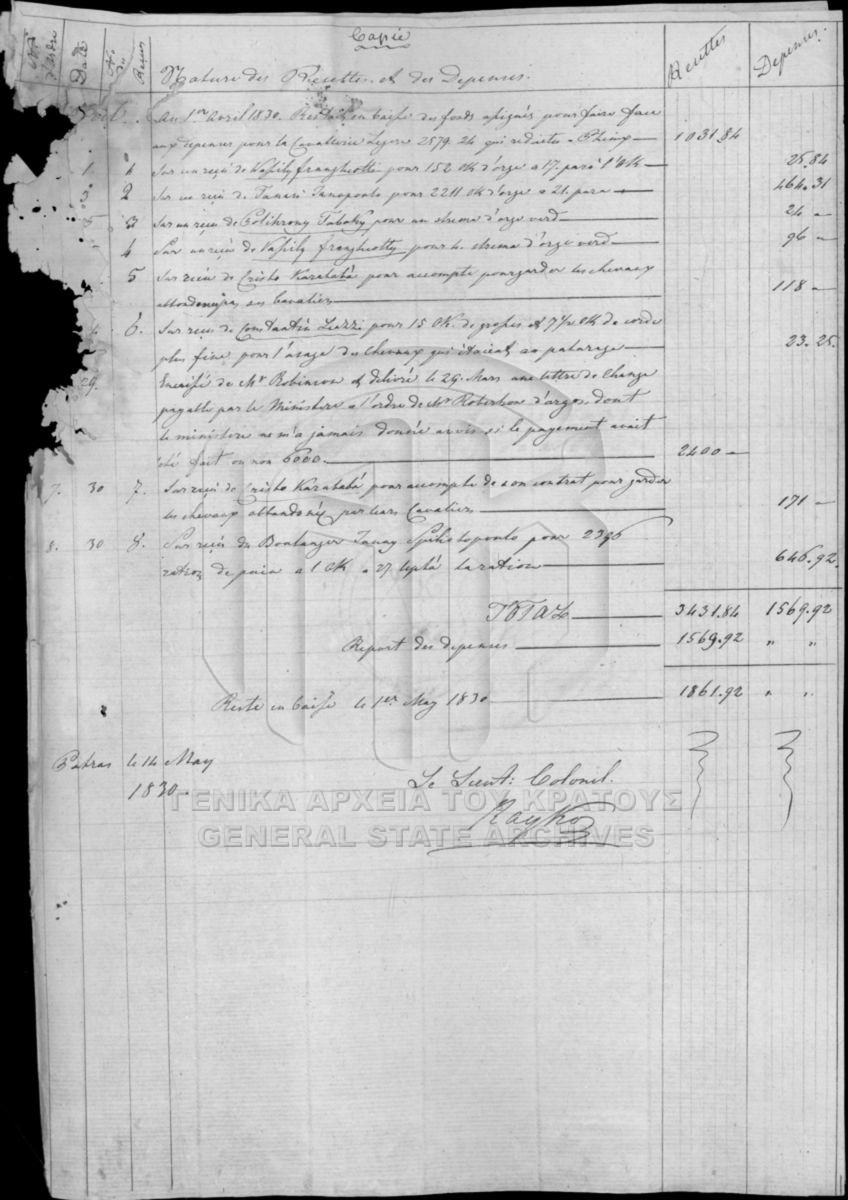 Copié
N° d'ordre Date N° du Reçus Nature des Recettes et des Depenses. Recettes Depenses.
Avril. Au 1er Avril 1830. Restait en Caisse des fonds assignés pour faire face
aux depenses pour la Cavallerie Legere 2579.24 qui reduits a Phénix 1031.84
1 1 Sur un reçu de Vassily franghiotti pour 152 OK d'orge a 17. para l'OK 25.84
3 2 Sur un reçu de Janaci Janopoulo pour 2211 OK d'orge a 21. para 464.31
5 3 Sur un reçu de Polihrony Tabaky pour un strema d'orge verd 24 "
4 Sur un reçu de Vassily franghiotty pour 4 strema d'orge verd 96 "
5 Sur reçu de Cristo Karatabá pour accompte pour garder les chevaux
abbandonés par les Cavaliers 118 "
6. Sur reçu de Constantin Liazzi pour 15 OK. de grosses et 7 1/2 OK de corde
plus fine pour l'usage des Chevaux qui étaient au paturage 23.25.
29 Encaissé de Mr Robinson et délivré le 29. Mars une lettre de Change
payable par le Ministère a l'ordre de Mr Robertson d'argos, dont
le ministere ne m'a jamais donnée avvis si le payement avait
été fait ou non 6000. 2400 "
7. 30 7. Sur reçu de Cristo Karatabá pour accompte de son contrat pour garder
les chevaux abbandonéz par leurs Cavaliers 171 "
8. 30 8. Sur reçu du Boulanger Janny pour 2396
ration de pain a 1 OK a 27 leptá la ration 646.92.
TOTAL 3431.84 1569.92
Report des depenses 1569.92 " "
Reste en Caisse le 1er May 1830 1861.92 " "
Patras le 14 May
1830
Le Lieut: Colonel.
Rayko
ΓΕΝΙΚΑ ΑΡΧΕΙΑ ΤΟΥ ΚΡΑΤΟΥΣ
GENERAL STATE ARCHIVES